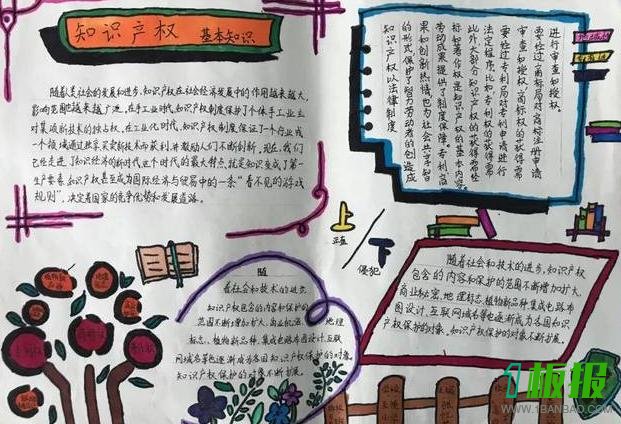 知识产权
基本知识
随着人类社会的发展和进步,知识产权在社会经济发展中的作用越来越大,
影响范围也越来越广泛,在手工业时代,知识产权制度保护了个体手工业主
对某项新技术的独占权,在工业化时代,知识产权制度保证了一个企业或一
个领域通过
新技术而获利,并激励人们不断创新,现在,我们
已经走进了知识经济的新时代,这个时代的最大特点,就是知识变成了第一
生产要素,知识产权甚至成为国际经济与贸易中的一条“看不见的游戏
规则”,决定着国家的竞争优势和发展道路。
进行审查如授权。
要经过商标局对商标注册申请
审查如授权,商标权的获得需
要经过专利局对专利申请进行
法定程序,比如专利权的获得需
此外,大部分知识产权的获得需经
标如著作权是知识产权的基本内容
劳动成果提供了制度保障,专利,商
果和创新热情,也为社会共享智
的形式保护了智力劳动者的创造成
知识产权以法律制度
上
正直
下
侵犯
随
着社会和技术的进步
知识产权包含的内容和保护的
范围不断增加扩大,商业机密
地理
标志,植物新品种,集成电路布图设计,互联
网域名等也逐渐成为各国知识产权保护的对象,
知识产权保护的对象不断扩展。
随着社会和技术的进步,知识产权
包含的内容和保护的范围不断增加扩大,
商业秘密,地理标志,植物新品种,集成电路布
图设计,互联网域名等也逐渐成为各国知识
产权保护的对象,知识产权保护的对象不断扩展。
1板报
WWW.1BANBAO.COM